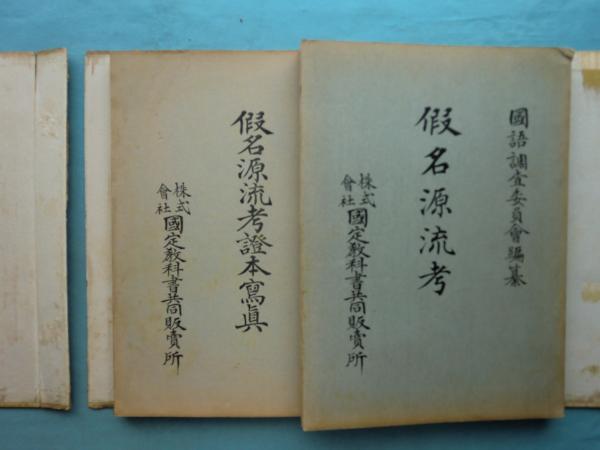 國語調査委員會編纂
假名源流考
株式會社國定教科書共同販賣所
假名源流考證本寫眞
株式會社國定教科書共同販賣所